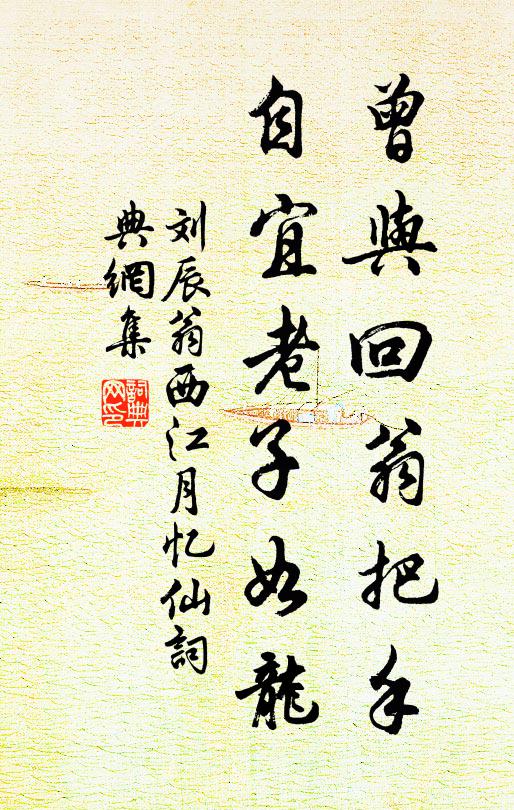 曾與回翁把手
自宜老子如龍
刘辰翁西江月忆仙詞
典網集
詞典
网印